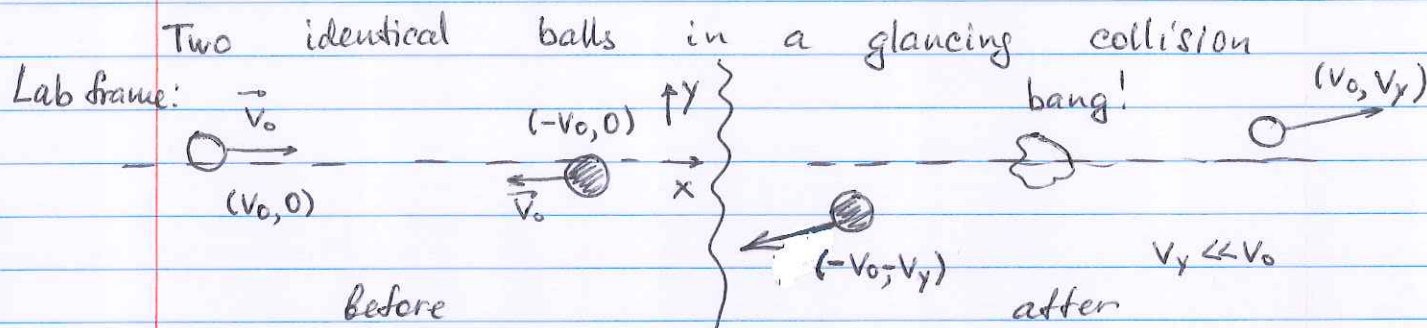 Two identical balls in a glancing collision
Lab frame:
V₀
(V₀,0)
(-V₀,0)
V₀
y
x
before
bang!
(V₀,Vy)
(-V₀,-Vy)
Vy << V₀
after